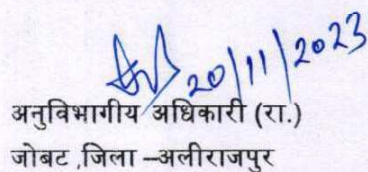 20/11/2023
अनुविभागीय अधिकारी (रा.)
जोबट ,जिला –अलीराजपुर